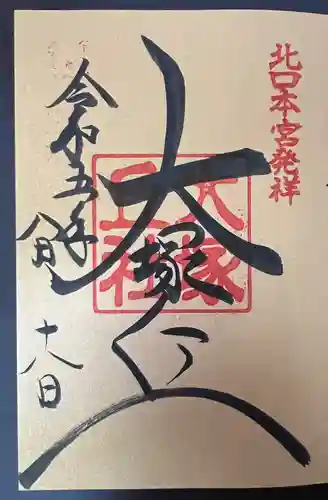 北口本宮発祥
大塚丘
大塚
丘社
令和五年
十八日